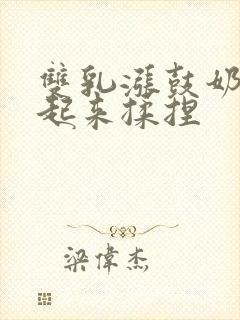 雙乳漲鼓奶
起来揉捏
梁偉杰